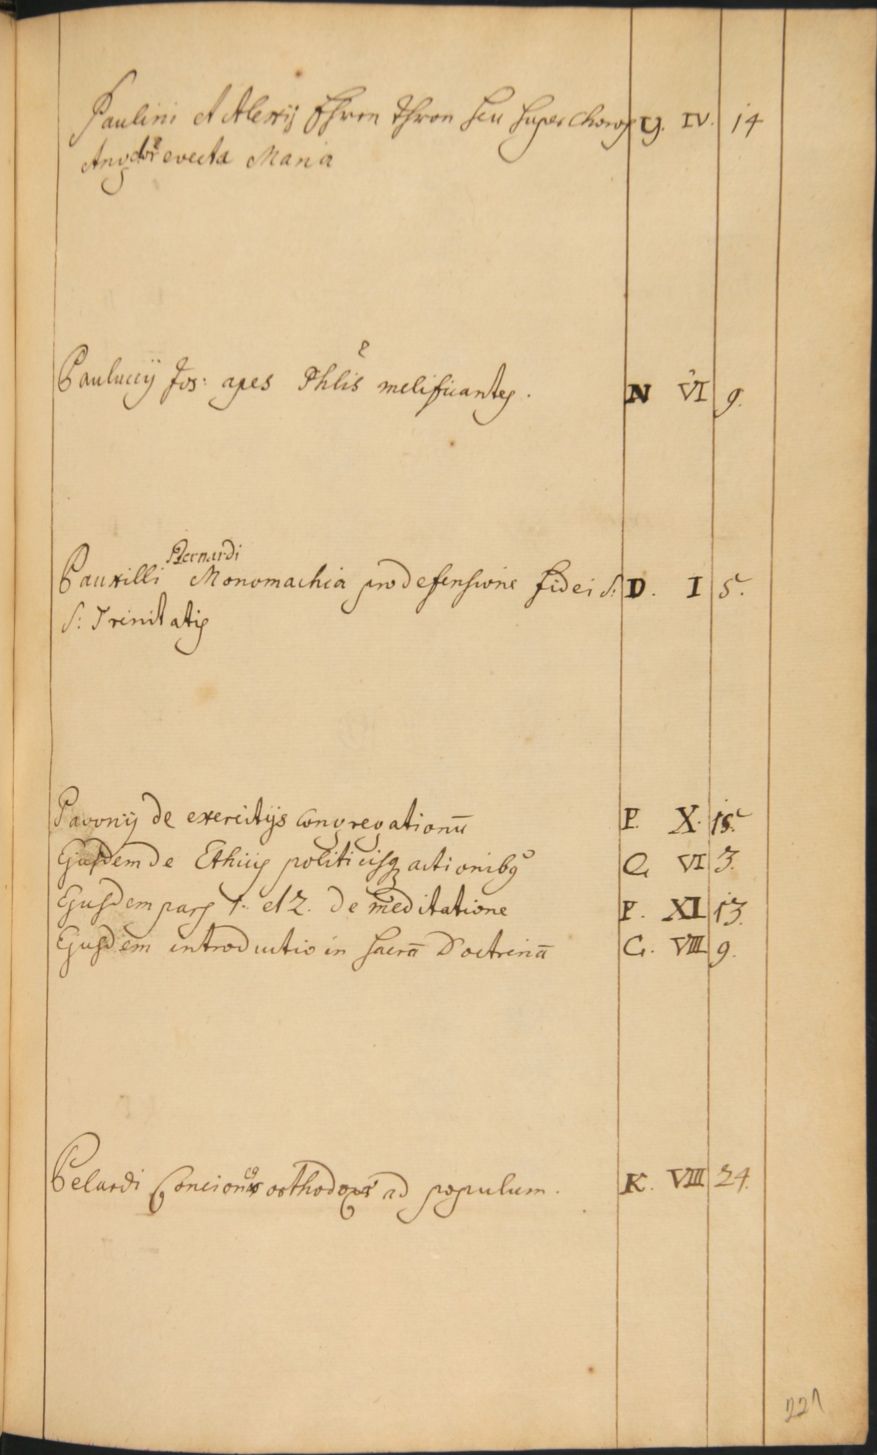 Paulini et Alexij Thron Thron seu super choros Y. IV. 14
Angelor evecta Maria
Paulucij Jos: apes Phlis melificantes. N VI 9.
Pauxilli Bernardi Monomachia pro defensione fidei S: D. I 5.
S: Trinitatis
Pavonij de exercitijs congregationū P. X. 15.
Ejusdem de Ethicis politicisq actionibq G VI 3.
Ejusdem pars 1. et 2. de meditatione P. XI 13.
Ejusdem introductio in sacrā Doctrinā G. VIII 9.
Pelardi Conciones orthodoxæ ad populum. K. VIII 24.
221